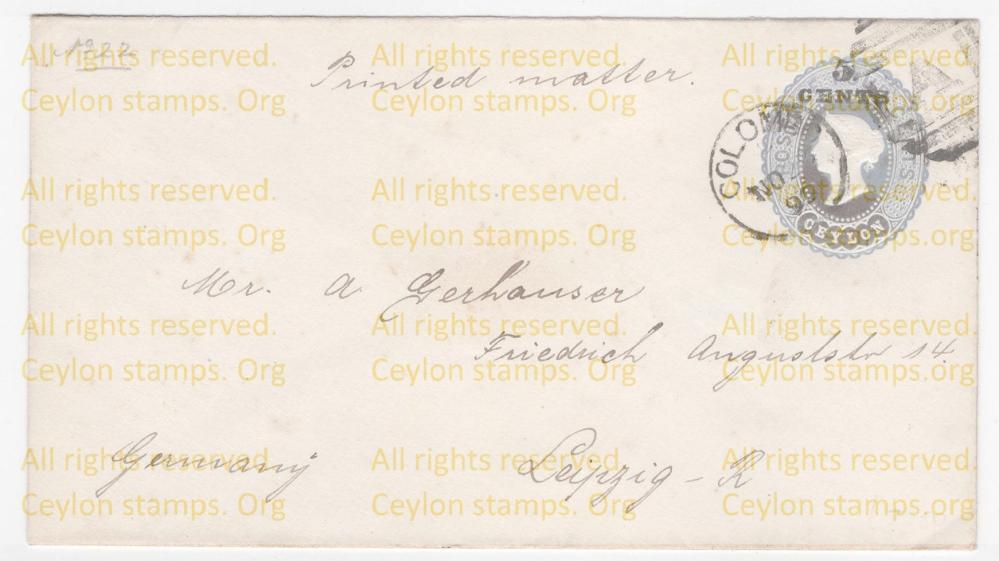 No 22
Printed matter.
5
CENTS
COLOMBO
NO
99
CEYLON
Mr. A Gerhauser
Friedrich Auguststr 14.
Germany
Leipzig - R
All rights reserved. All rights reserved. All rights reserved.
Ceylon stamps. Org Ceylon stamps. Org Ceylon stamps. Org
All rights reserved. All rights reserved. All rights reserved.
Ceylon stamps. Org Ceylon stamps. Org Ceylon stamps. Org
All rights reserved. All rights reserved. All rights reserved.
Ceylon stamps. Org Ceylon stamps. Org Ceylon stamps. Org
All rights reserved. All rights reserved. All rights reserved.
Ceylon stamps. Org Ceylon stamps. Org Ceylon stamps. Org